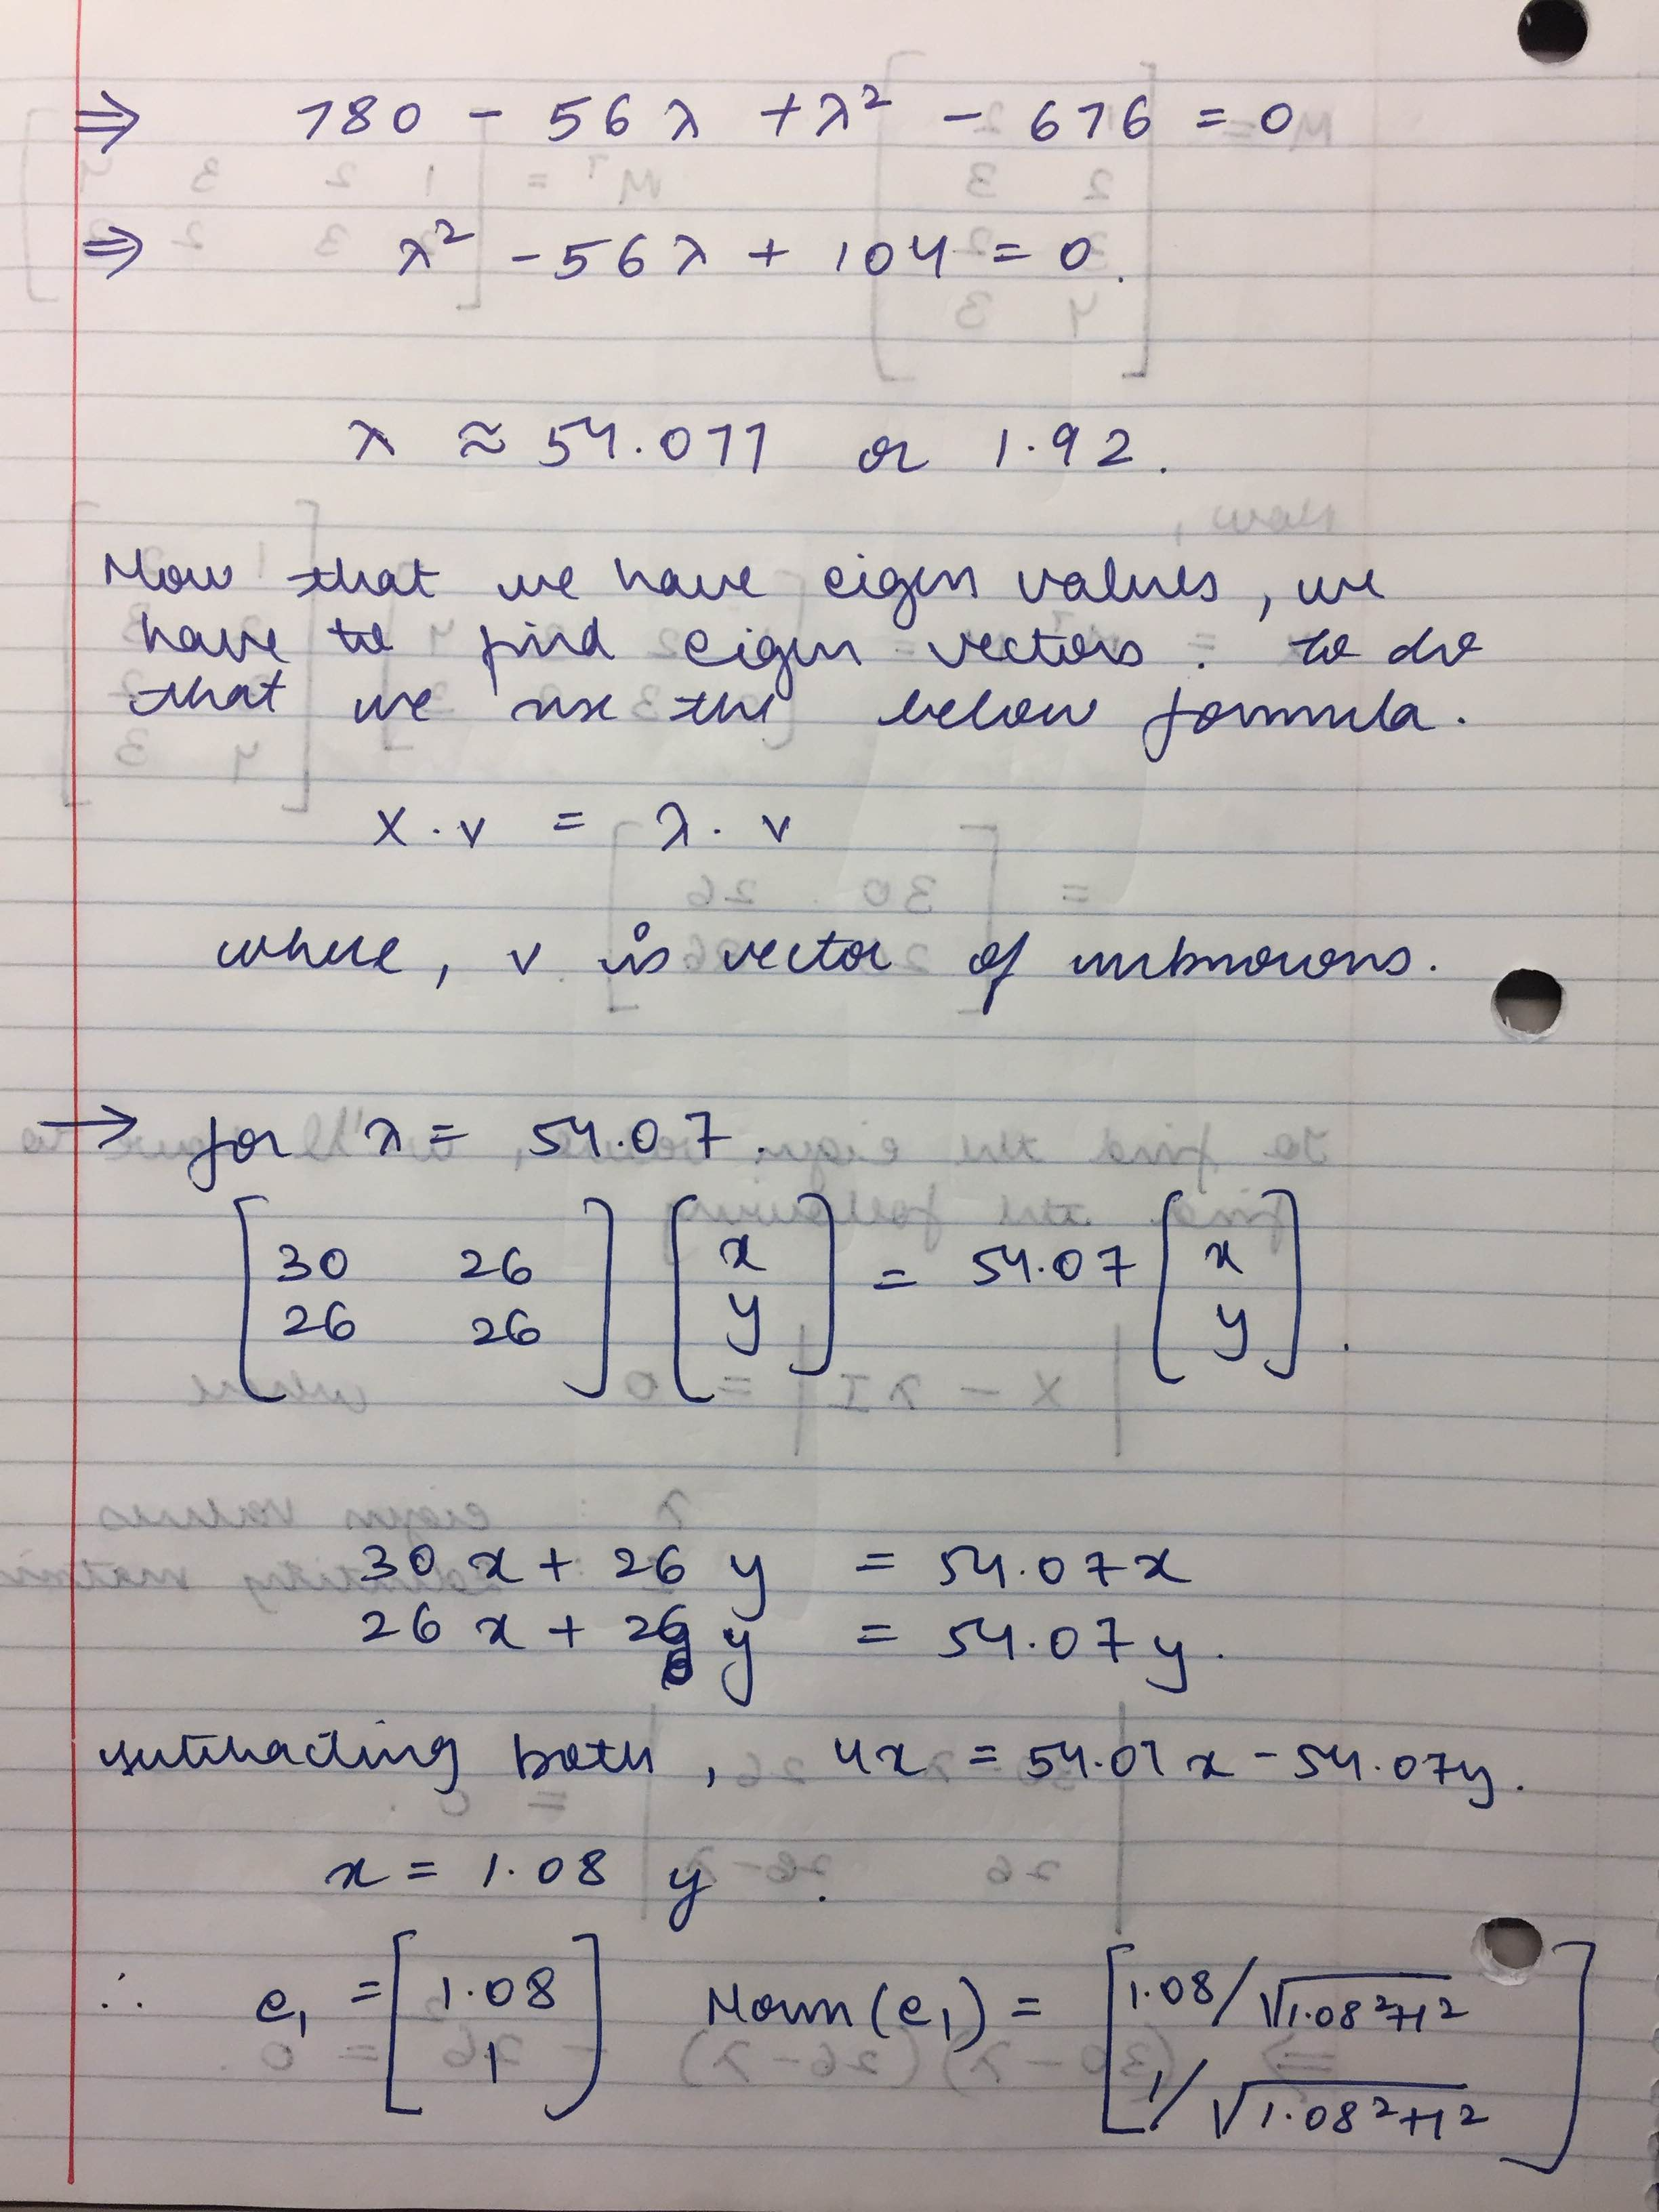 ⇒ 780 - 56λ + λ² - 676 = 0
⇒ λ² - 56λ + 104 = 0.
λ ≈ 54.077 or 1.92.
Now that we have eigen values, we
have to find eigen vectors. to do
that we use the below formula.
X . v = λ . v
where, v is vector of unknowns.
→ for λ = 54.07.
[30 26; 26 26] [x; y] = 54.07 [x; y].
30x + 26y = 54.07x
26x + 26y = 54.07y.
subtracting both, 4x = 54.07x - 54.07y.
x = 1.08 y.
∴ e₁ = [1.08; 1] Norm(e₁) = [1.08/√1.08²+1²; 1/√1.08²+1²]